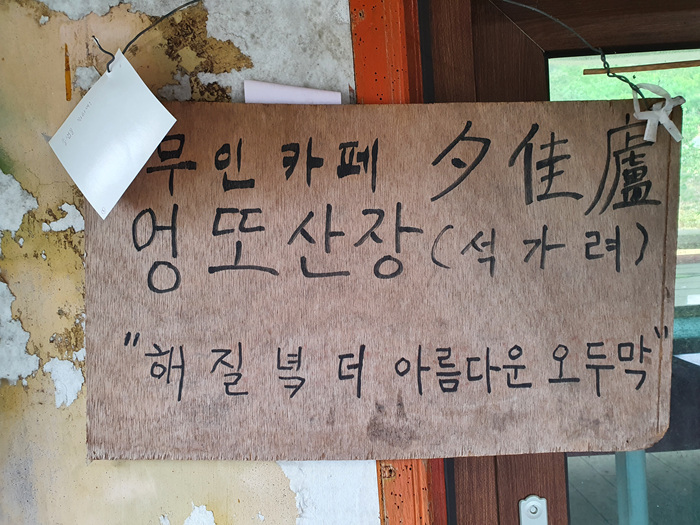 무인카페 夕佳廬
엉또산장(석가려)
"해질녘 더 아름다운 오두막"